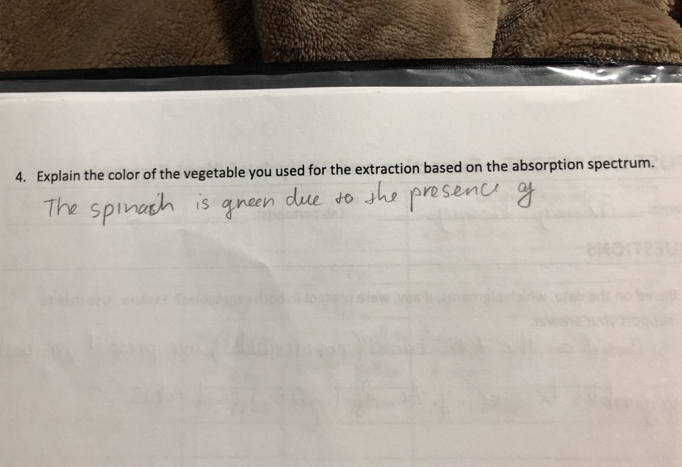 4. Explain the color of the vegetable you used for the extraction based on the absorption spectrum.
The spinach is green due to the presence of